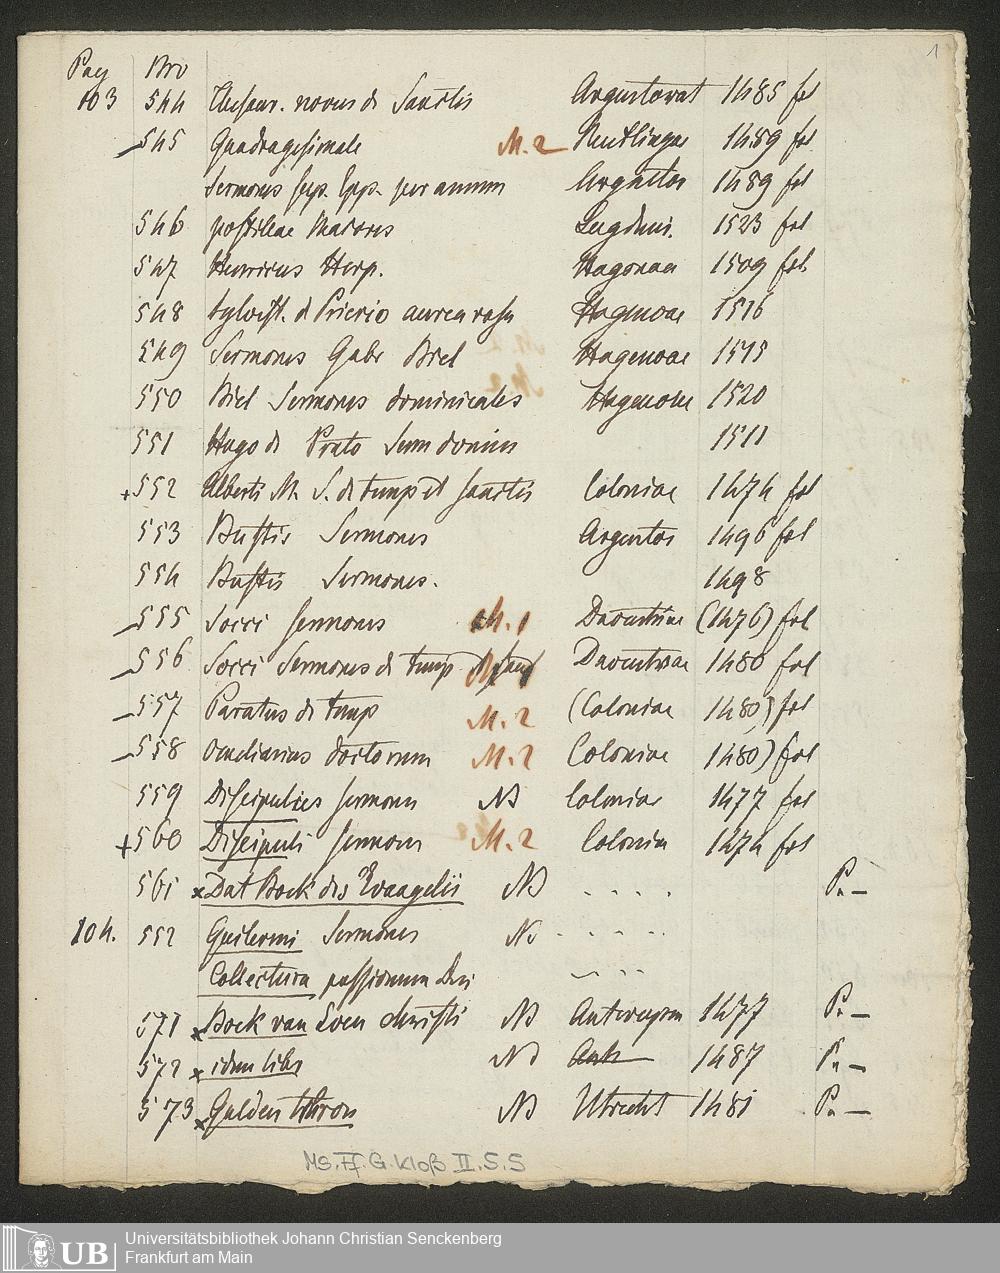 1
Pag Nro
103 544 Thesaur. novus de Sanctis Argentorat 1485 fol
545 Quadragesimale M. 2 Reutlingae 1489 fol
Sermones sup. Epp. per annum Argentor 1489 fol
546 postillae Maioris Lugduni. 1523 fol
547 Henricus Herp. Hagenau 1509 fol
548 Sylvest. d Prierio aurea rosa Hagenoae 1516
549 Sermones Gabr Biel Hagenoae 1515
550 Biel Sermones dominicales Hagenoae 1520
551 Hugo de Prato Serm domin 1511
+552 Alberti M. S. de temp et sanctis Coloniae 1474 fol
553 Bustis Sermones Argentor 1496 fol
554 Bustis Sermones. 1498
555 Socci sermones M. 1 Daventriae (1476) fol
556 Socci Sermones de temp Daventriae 1480 fol
557 Paratus de temp M. 2 (Coloniae 1480) fol
558 doctorum M. 2 Coloniae 1480) fol
559 Discipulus sermones NB Coloniae 1477 fol
+560 Discipuli sermones M. 2 Colonia 1474 fol
561 x Dat Boek des Evangelii NB . . . . P. —
104. 552 Guilermi Sermones NB . . . .
Collectura passionum Dni
571 x Boek van Leven christi NB Antwerpen 1477 P. —
572 x idem liber NB Antw 1487 P. —
573 x Gulden thron NB Utrecht 1481 P. —
Ms. Ff. G. Kloß II. 5. 5
UB Universitätsbibliothek Johann Christian Senckenberg
Frankfurt am Main